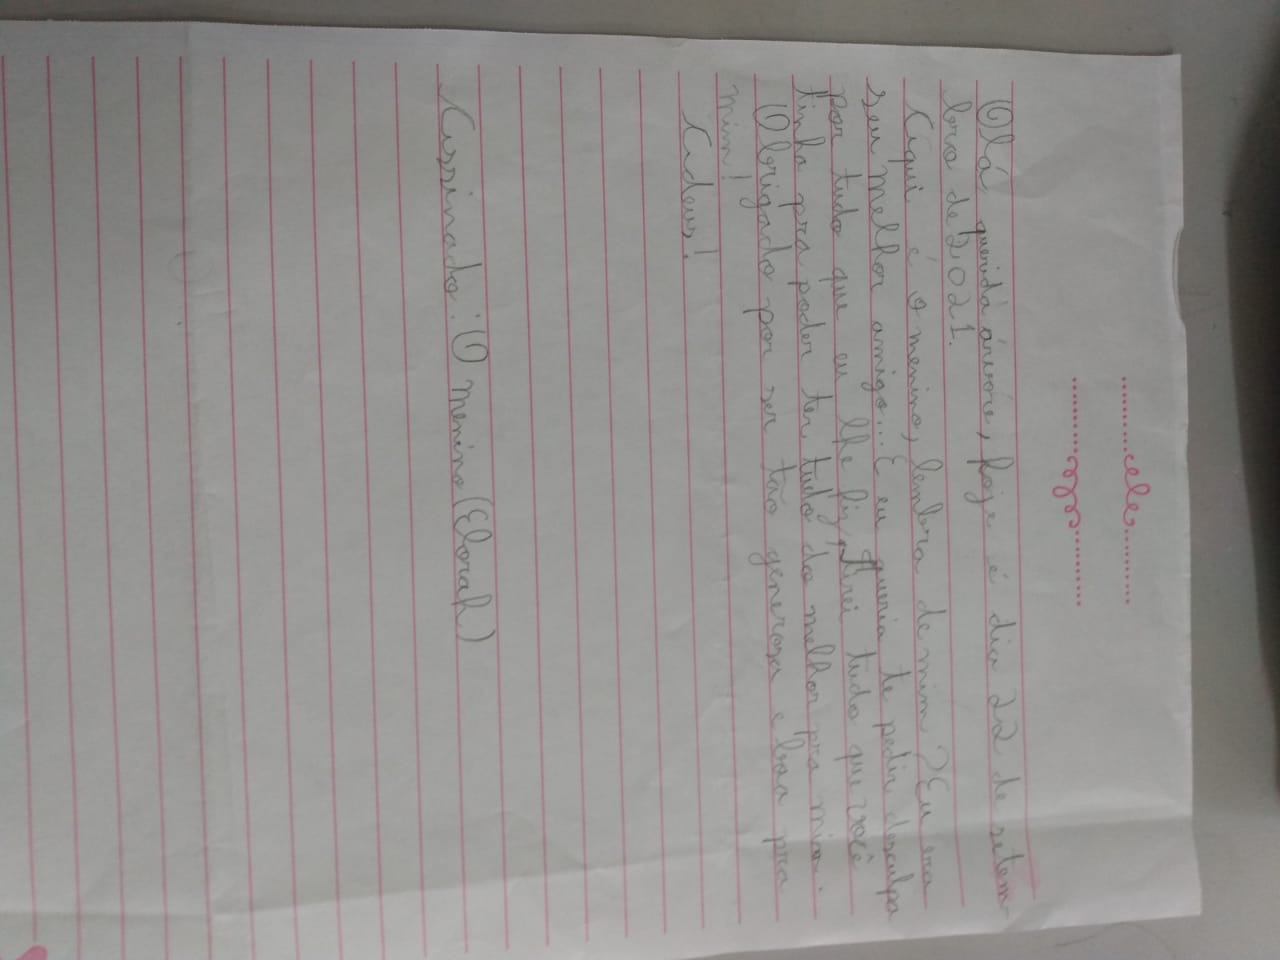 Olá, querida árvore, hoje é dia 22 de setem-
bro de 2021.
Aqui é o menino, lembra de mim? Eu era
seu melhor amigo... E eu queria te pedir desculpa
por tudo que eu lhe fiz, tirei tudo que você
tinha pra poder ter tudo do melhor pra mim.
Obrigado por ser tão generosa e boa pra
mim!
Adeus!
Assinado: O menino (Elorah)